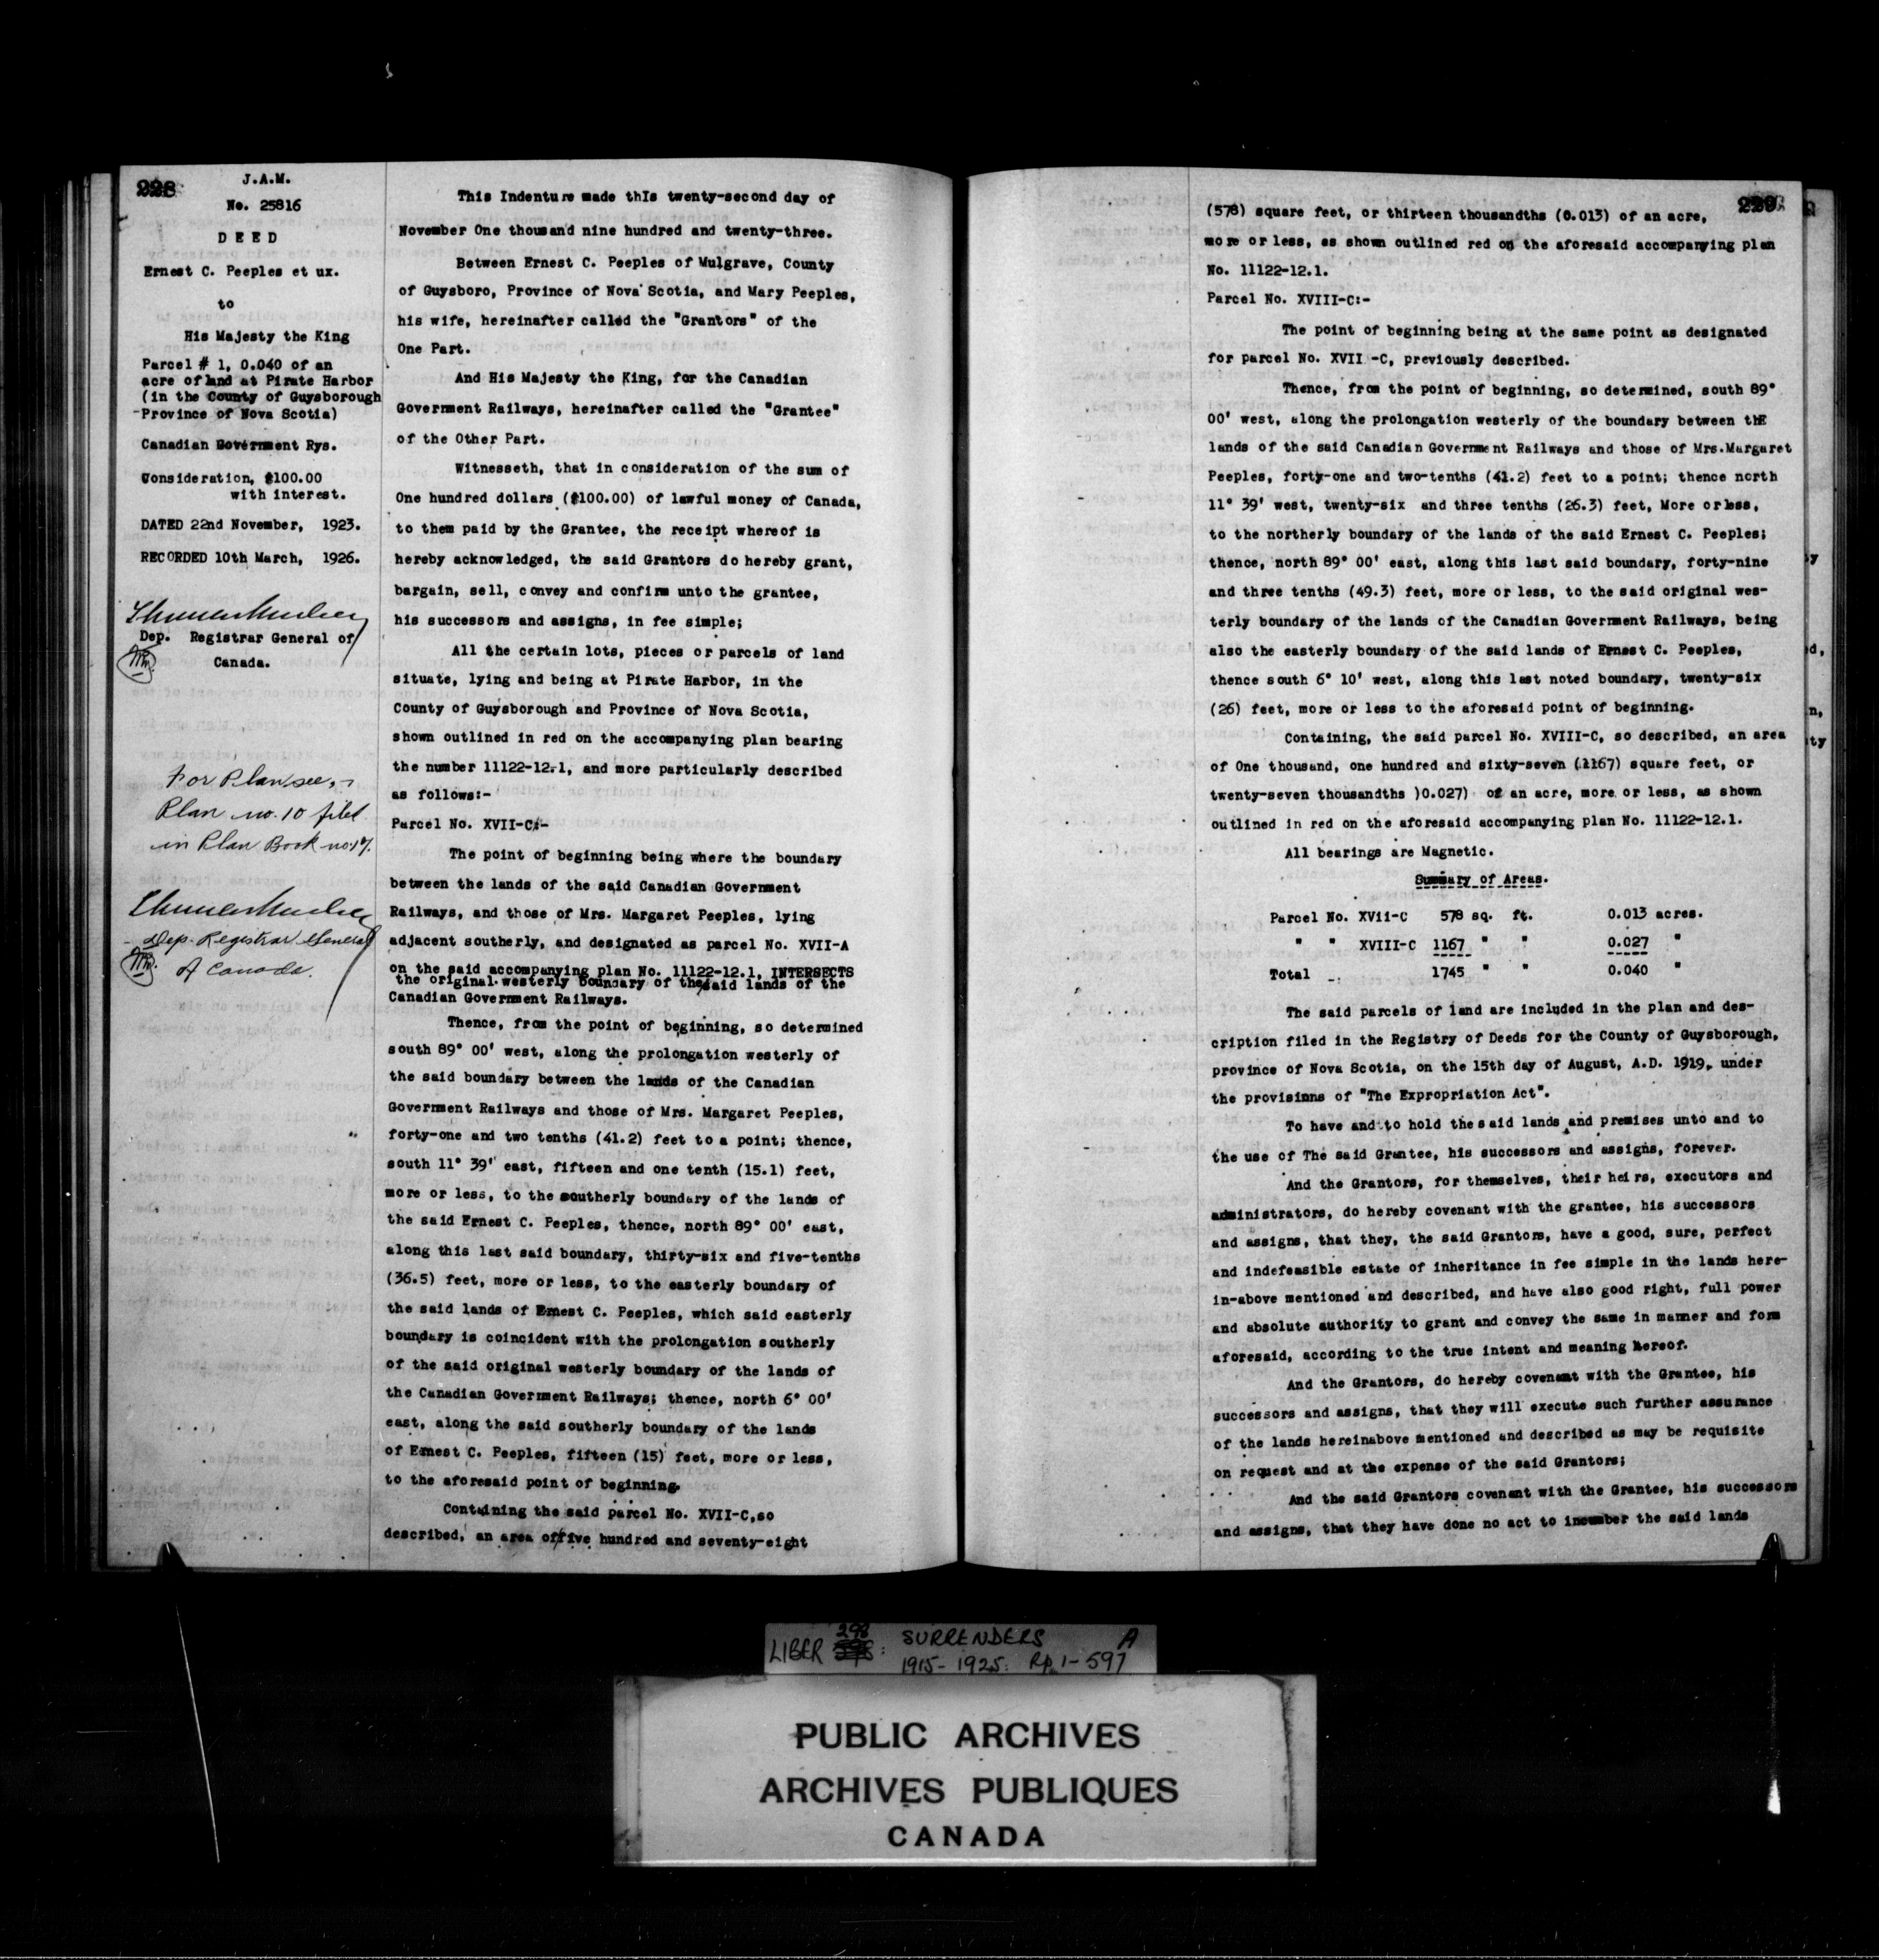 228
J.A.M.
No. 25816
D E E D
Ernest C. Peeples et ux.
to
His Majesty the King
Parcel # 1, 0.040 of an
acre of land at Pirate Harbor
(in the County of Guysborough
Province of Nova Scotia)
Canadian Government Rys.
Consideration, $100.00
with interest.
DATED 22nd November, 1923.
RECORDED 10th March, 1926.
Dep. Registrar General of
Canada.
For Plan see,
Plan no. 10 filed
in Plan Book no. 17.
Dep. Registrar General
of Canada.
This Indenture made thIs twenty-second day of
November One thousand nine hundred and twenty-three.
Between Ernest C. Peeples of Mulgrave, County
of Guysboro, Province of Nova Scotia, and Mary Peeples,
his wife, hereinafter called the "Grantors" of the
One Part.
And His Majesty the King, for the Canadian
Government Railways, hereinafter called the "Grantee"
of the Other Part.
Witnesseth, that in consideration of the sum of
One hundred dollars ($100.00) of lawful money of Canada,
to them paid by the Grantee, the receipt whereof is
hereby acknowledged, the said Grantors do hereby grant,
bargain, sell, convey and confirm unto the grantee,
his successors and assigns, in fee simple;
All the certain lots, pieces or parcels of land
situate, lying and being at Pirate Harbor, in the
County of Guysborough and Province of Nova Scotia,
shown outlined in red on the accompanying plan bearing
the number 11122-12.1, and more particularly described
as follows:-
Parcel No. XVII-C:-
The point of beginning being where the boundary
between the lands of the said Canadian Government
Railways, and those of Mrs. Margaret Peeples, lying
adjacent southerly, and designated as parcel No. XVII-A
on the said accompanying plan No. 11122-12.1, INTERSECTS
the original westerly boundary of the/said lands of the
Canadian Government Railways.
Thence, from the point of beginning, so determined
south 89° 00' west, along the prolongation westerly of
the said boundary between the lands of the Canadian
Government Railways and those of Mrs. Margaret Peeples,
forty-one and two tenths (41.2) feet to a point; thence,
south 11° 39' east, fifteen and one tenth (15.1) feet,
more or less, to the southerly boundary of the lands of
the said Ernest C. Peeples, thence, north 89° 00' east,
along this last said boundary, thirty-six and five-tenths
(36.5) feet, more or less, to the easterly boundary of
the said lands of Ernest C. Peeples, which said easterly
boundary is coincident with the prolongation southerly
of the said original westerly boundary of the lands of
the Canadian Government Railways; thence, north 6° 00'
east, along the said southerly boundary of the lands
of Ernest C. Peeples, fifteen (15) feet, more or less,
to the aforesaid point of beginning.
Containing the said parcel No. XVII-C,so
described, an area of/five hundred and seventy-eight
229
(578) square feet, or thirteen thousandths (0.013) of an acre,
more or less, as shown outlined red on the aforesaid accompanying plan
No. 11122-12.1.
Parcel No. XVIII-C:-
The point of beginning being at the same point as designated
for parcel No. XVII -C, previously described.
Thence, from the point of beginning, so determined, south 89°
00' west, along the prolongation westerly of the boundary between thE
lands of the said Canadian Government Railways and those of Mrs.Margaret
Peeples, forty-one and two-tenths (41.2) feet to a point; thence north
11° 39' west, twenty-six and three tenths (26.3) feet, More or less,
to the northerly boundary of the lands of the said Ernest C. Peeples;
thence, north 89° 00' east, along this last said boundary, forty-nine
and three tenths (49.3) feet, more or less, to the said original wes-
terly boundary of the lands of the Canadian Government Railways, being
also the easterly boundary of the said lands of Ernest C. Peeples,
thence south 6° 10' west, along this last noted boundary, twenty-six
(26) feet, more or less to the aforesaid point of beginning.
Containing, the said parcel No. XVIII-C, so described, an area
of One thousand, one hundred and sixty-seven (1167) square feet, or
twenty-seven thousandths )0.027) of an acre, more or less, as shown
outlined in red on the aforesaid accompanying plan No. 11122-12.1.
All bearings are Magnetic.
Summary of Areas.
Parcel No. XVii-C 578 sq. ft. 0.013 acres.
" " XVIII-C 1167 " " 0.027 "
Total 1745 " " 0.040 "
The said parcels of land are included in the plan and des-
cription filed in the Registry of Deeds for the County of Guysborough,
province of Nova Scotia, on the 15th day of August, A.D. 1919, under
the provisinns of "The Expropriation Act".
To have and to hold the said lands and premises unto and to
the use of The said Grantee, his successors and assigns, forever.
And the Grantors, for themselves, their heirs, executors and
administrators, do hereby covenant with the grantee, his successors
and assigns, that they, the said Grantors, have a good, sure, perfect
and indefeasible estate of inheritance in fee simple in the lands here-
in-above mentioned and described, and have also good right, full power
and absolute authority to grant and convey the same in manner and form
aforesaid, according to the true intent and meaning hereof.
And the Grantors, do hereby covenant with the Grantee, his
successors and assigns, that they will execute such further assurance
of the lands hereinabove mentioned and described as may be requisite
on request and at the expense of the said Grantors;
And the said Grantors covenant with the Grantee, his successors
and assigns, that they have done no act to incumber the said lands
LIBER 298: SURRENDERS A
1915-1925. Pp. 1-597
PUBLIC ARCHIVES
ARCHIVES PUBLIQUES
CANADA